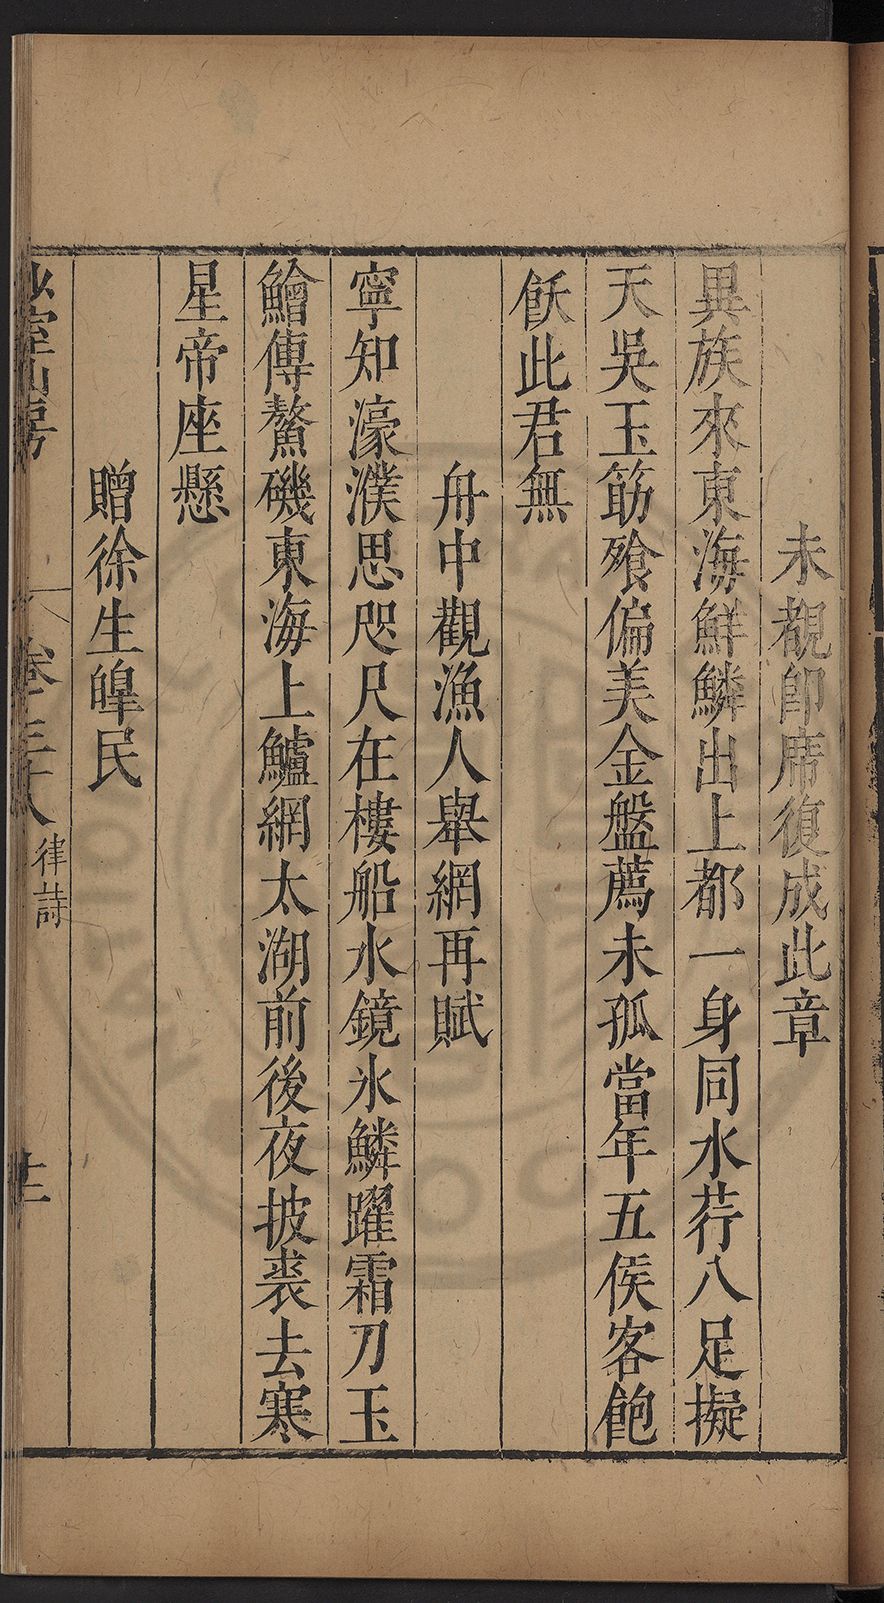 未覩即席復成此章
異族來東海鮮鱗出上都一身同水荇八足擬
天吳玉筯飱偏美金盤薦未孤當年五侯客飽
飫此君無
舟中觀漁人舉網再賦
寧知濠濮思咫尺在樓船水鏡氷鱗躍霜刀玉
鱠傳鰲磯東海上鱸網太湖前後夜披裘去寒
星帝座懸
贈徐生皥民
少室山房
卷三十八 律詩